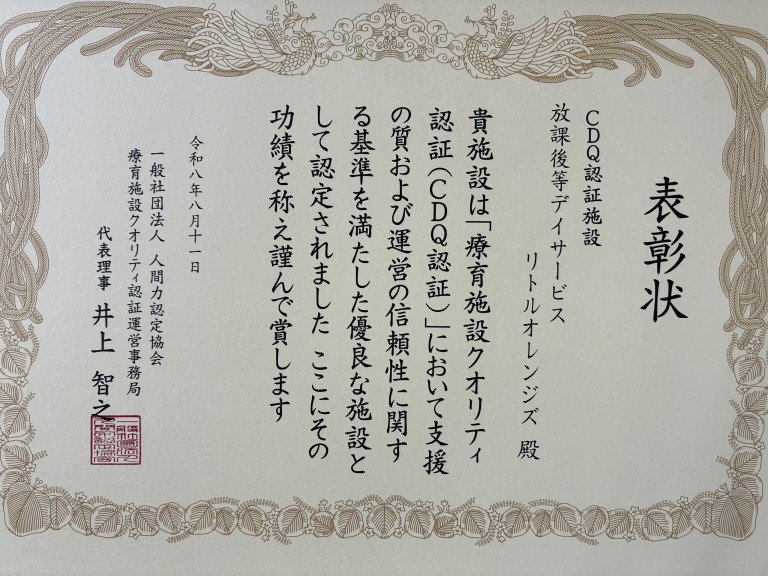 表彰状
CDQ認証施設
放課後等デイサービス
リトルオレンジズ 殿
貴施設は「療育施設クオリティ
認証(CDQ認証)」において支援
の質および運営の信頼性に関す
る基準を満たした優良な施設と
して認定されました ここにその
功績を称え謹んで賞します
令和八年八月十一日
一般社団法人 人間力認定協会
療育施設クオリティ認証運営事務局
代表理事 井上 智之